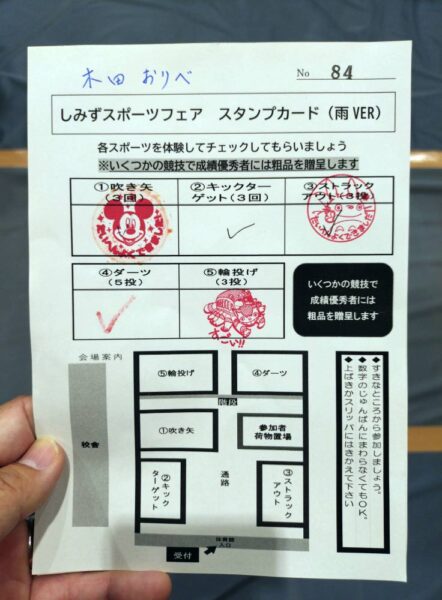 木田 おりべ
No 84
しみずスポーツフェア スタンプカード（雨VER）
各スポーツを体験してチェックしてもらいましょう
※いくつかの競技で成績優秀者には粗品を贈呈します
①吹き矢
（３回）
②キックター
ゲット（３回）
③ストラック
アウト（３投）
④ダーツ
（５投）
⑤輪投げ
（３投）
すごい!!
いくつかの競技で
成績優秀者には
粗品を贈呈します
会場案内
⑤輪投げ
④ダーツ
階段
①吹き矢
参加者
荷物置場
校舎
②キック
ターゲット
通路
③ストラック
アウト
体育館
入口
受付
◆すきなところから参加しましょう。
◆数字のじゅんばんにまわらなくてもOK。
◆上ばきかスリッパにはきかえて下さい